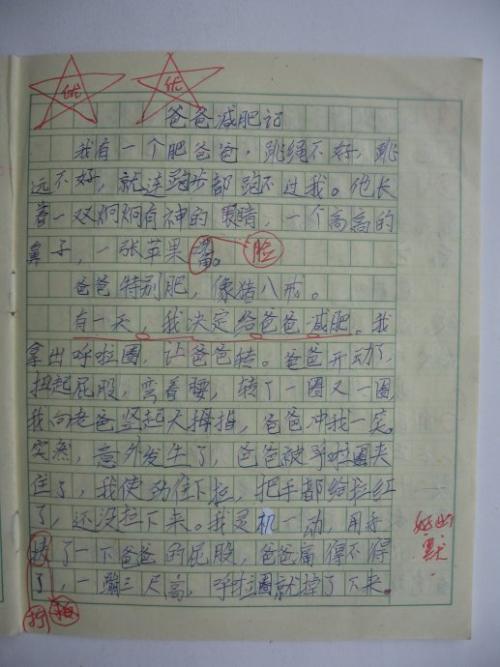 优 优
爸爸减肥记
我有一个肥爸爸,跳绳不好,跳
远不好,就连跑步都跑不过我。他长
着一双炯炯有神的眼睛,一个高高的
鼻子,一张苹果 。 脸
爸爸特别肥,像猪八戒。
有一天,我决定给爸爸减肥。我
拿出呼拉圈,让爸爸转。爸爸开动了,
扭起屁股,弯着腰,转了一圈又一圈
我向老爸竖起大拇指,爸爸冲我一笑。
突然,意外发生了,爸爸被呼啦圈夹
住了,我使劲往下拉,把手都给拉红
了,还没拉下来。我灵机一动,用手
了一下爸爸的屁股,爸爸痛得不得
了,一蹦三尺高,呼拉圈就掉了下来。
好幽
默